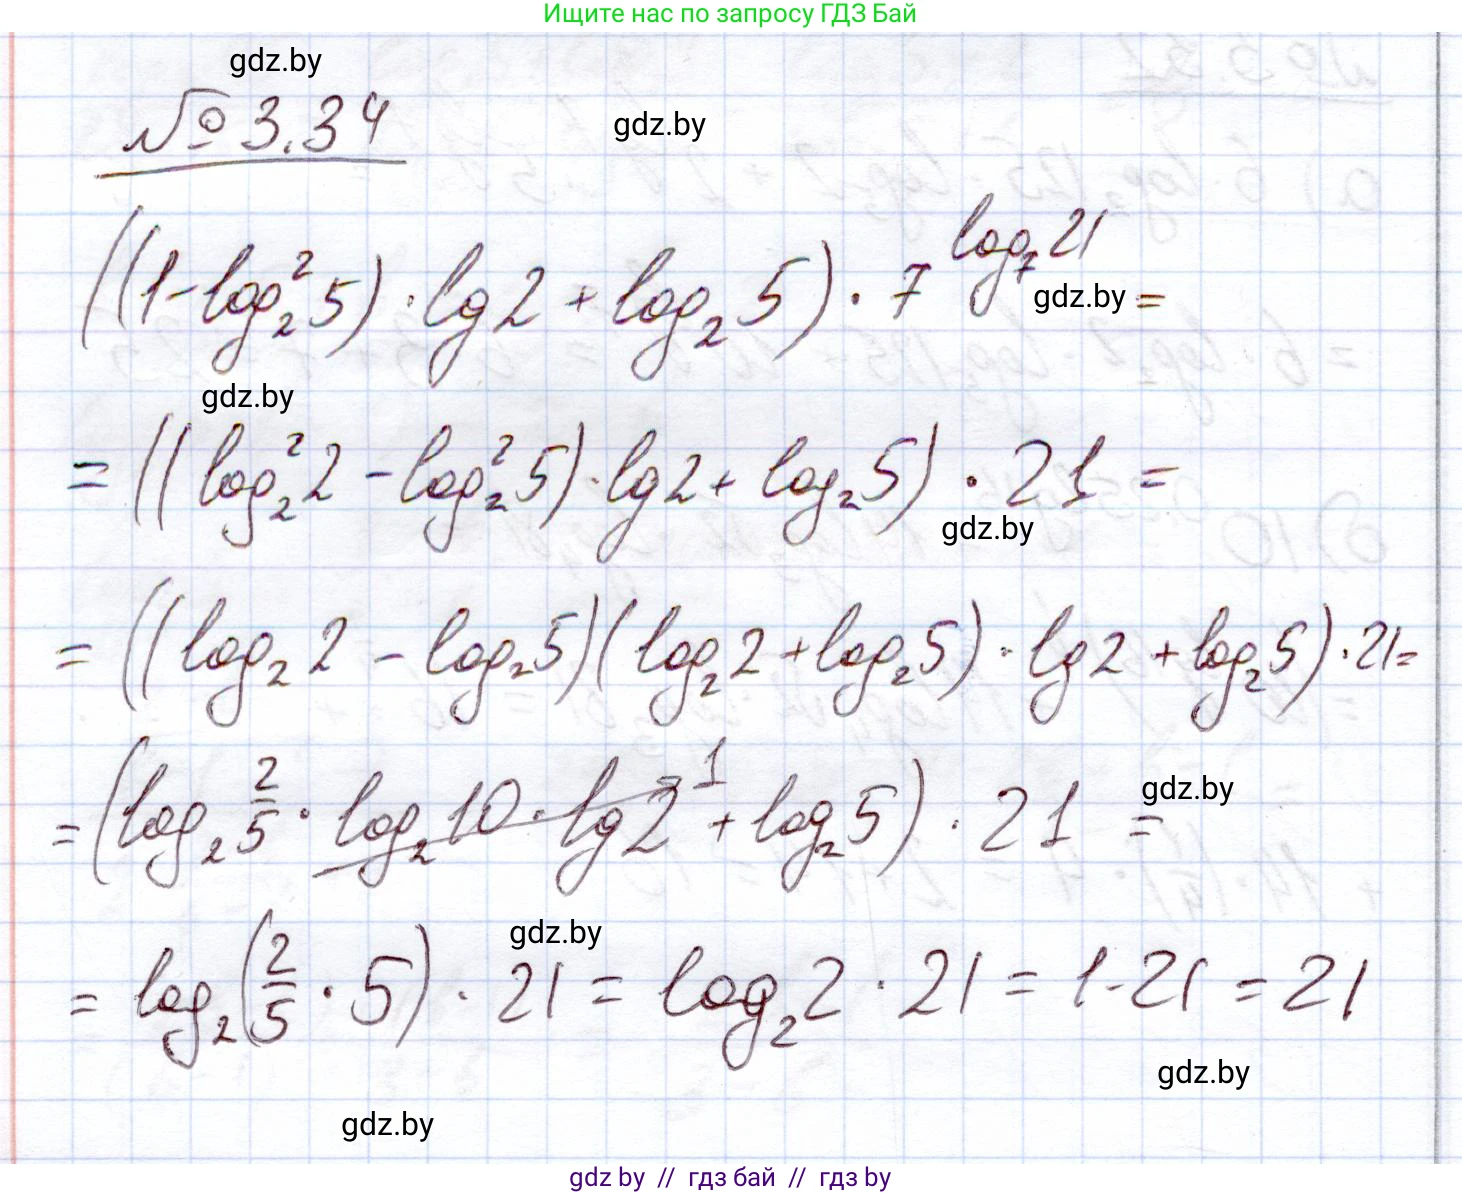 Ищите нас по запросу ГДЗ Бай
gdz.by
№ 3.34
gdz.by
((1-log₂²5)·lg2+log₂5)·7^(log₇21)=
gdz.by
gdz.by
=((log₂²2-log₂²5)·lg2+log₂5)·21=
gdz.by
=((log₂2-log₂5)(log₂2+log₂5)·lg2+log₂5)·21=
=(log₂2/5·log₂10·lg2 1+log₂5)·21=
gdz.by
gdz.by
=log₂(2/5·5)·21=log₂2·21=1·21=21
gdz.by
gdz.by
gdz by // гдз бай // гдз by